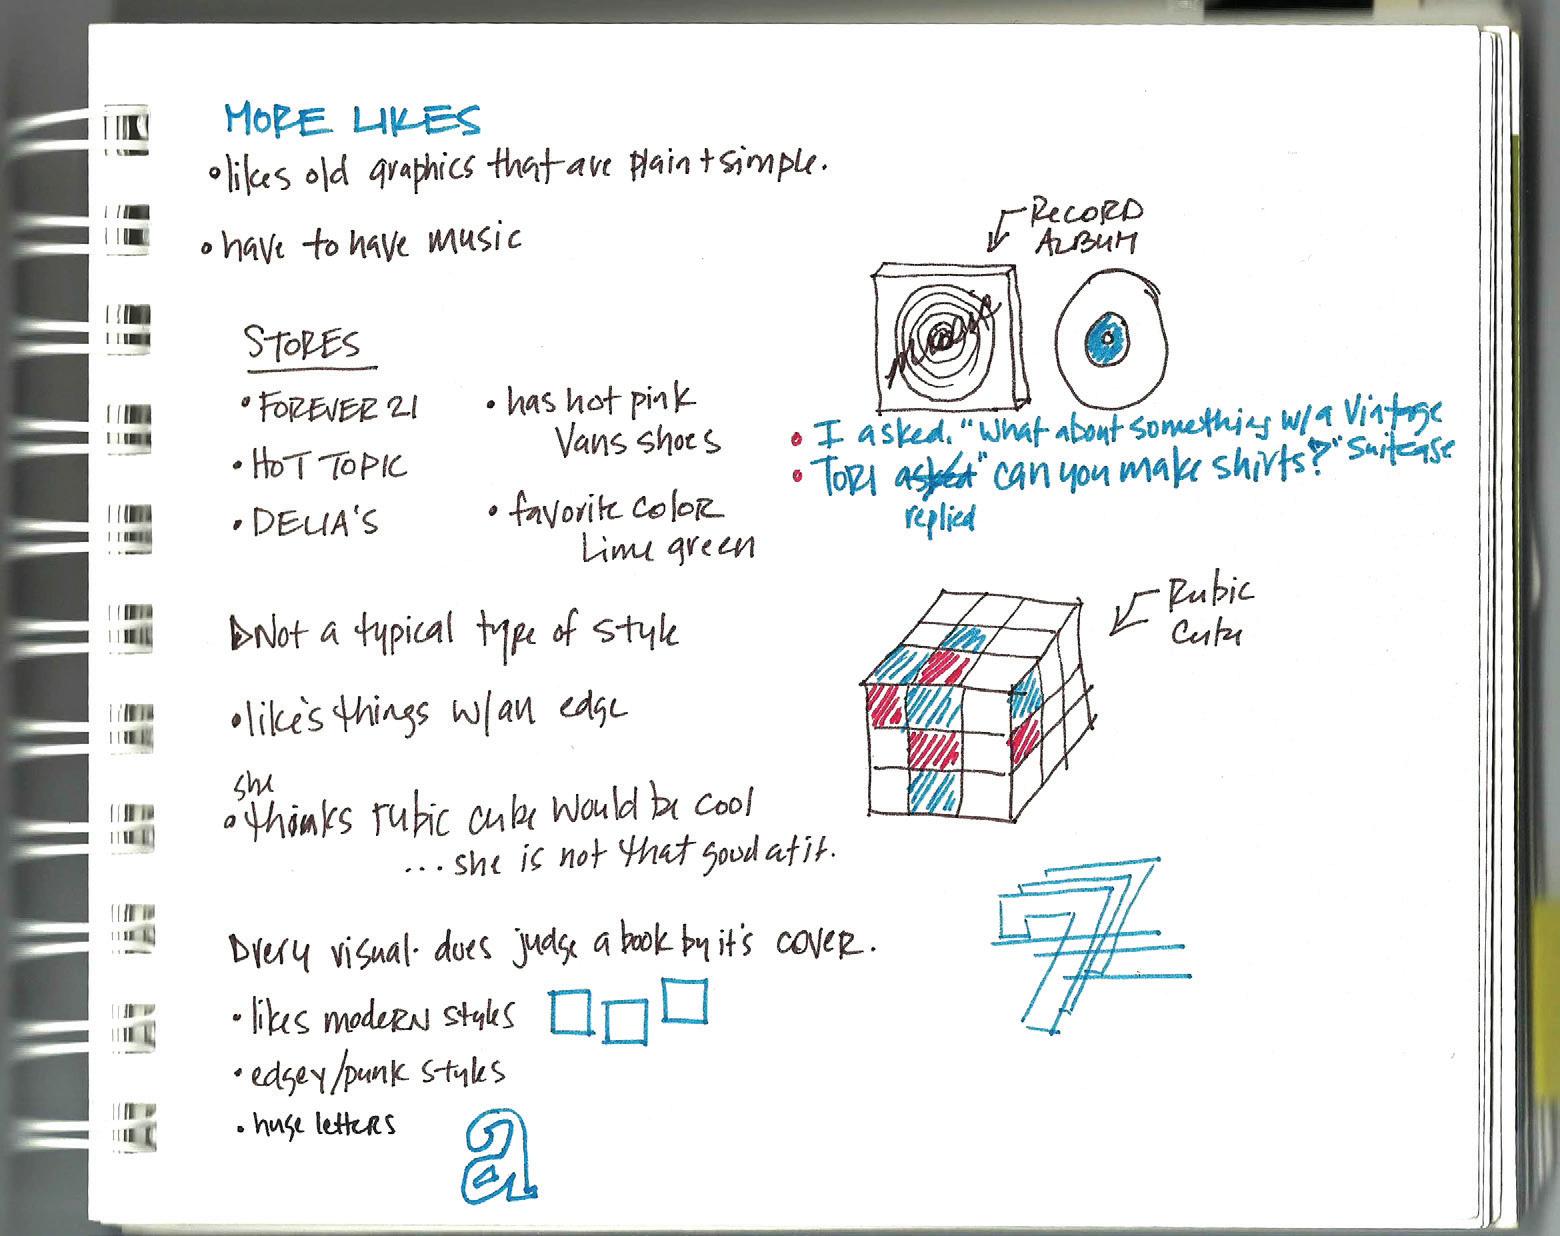 MORE LIKES
• likes old graphics that are plain + simple.
• have to have music
RECORD
ALBUM
music
STORES
• FOREVER 21
• HOT TOPIC
• DELIA'S
• has hot pink
Vans shoes
• favorite color
Lime green
• I asked. "What about something w/a Vintage
Suitcase
• TORI asked "can you make shirts?"
replied
Not a typical type of style
• like's things w/an edge
she
• thinks rubic cube would be cool
... she is not that good at it.
Rubic
Cube
very visual. does judge a book by it's cover.
• likes modern styles
• edgey/punk styles
• huge letters
a
7